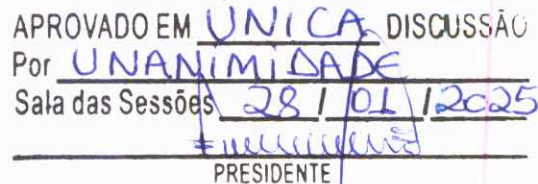 APROVADO EM UNICA DISCUSSÃO
Por UNANIMIDADE
Sala das Sessões 28 / 01 / 2025
PRESIDENTE